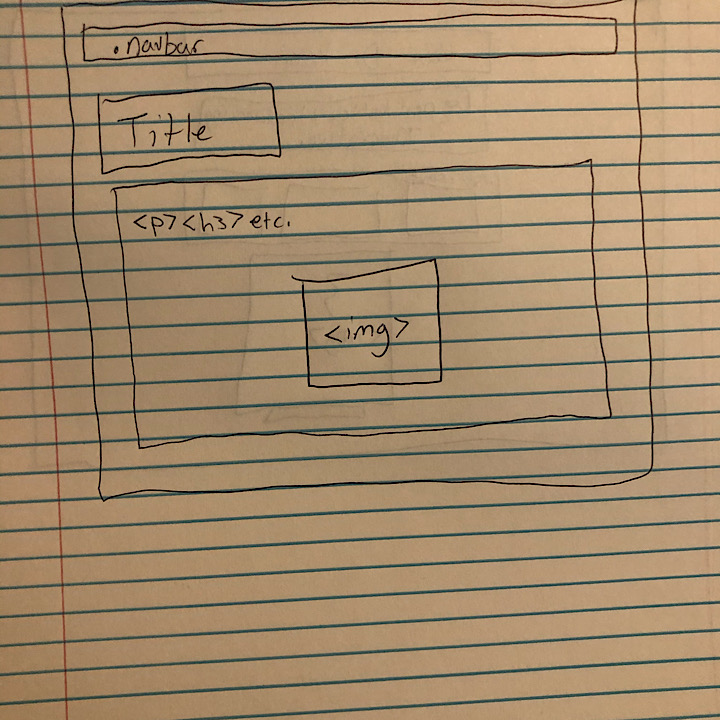 .navbar
Title
<p><h3> etc.
<img>